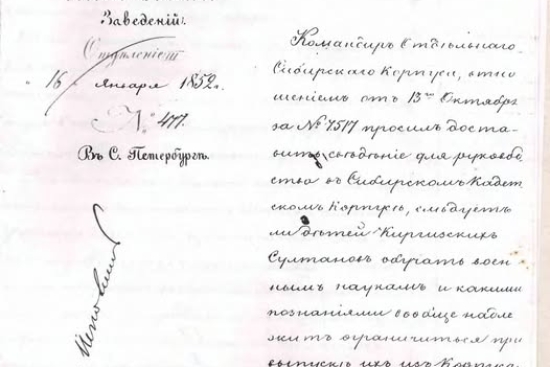 Заведеній.
Отдѣленіе
16 Января 1852 г.
№ 477.
Въ С. Петербургѣ.
Командиръ Отдѣльнаго
Сибирскаго Корпуса, отно
шеніемъ отъ 13го Октября
за № 7517 просилъ доста-
вить свѣдѣніе для руковод
ства въ Сибирскомъ Кадет
скомъ Корпусѣ, слѣдуетъ
ли дѣтей Киргизскихъ
Султановъ обучать воен-
нымъ наукамъ и какими
познаніями вообще надле-
житъ ограничиться при
выпускѣ ихъ изъ Корпуса